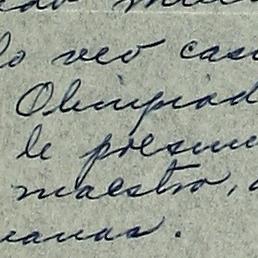 lo veo cas
Olimpiad
le presen
maestro,
anas.